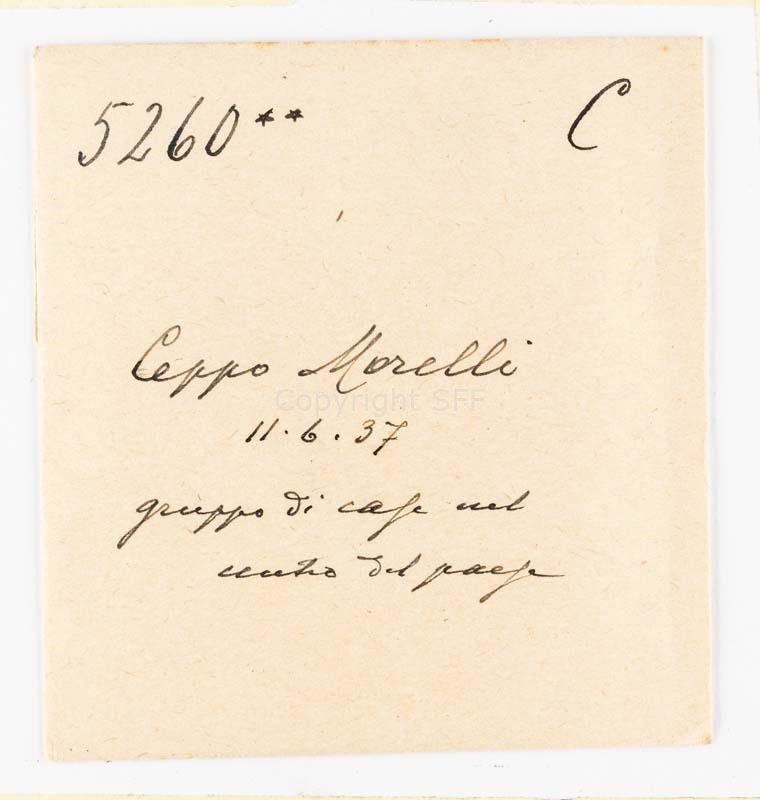 5260** C
Ceppo Morelli
Copyright SFF
11.6.37
gruppo di case nel
centro del paese